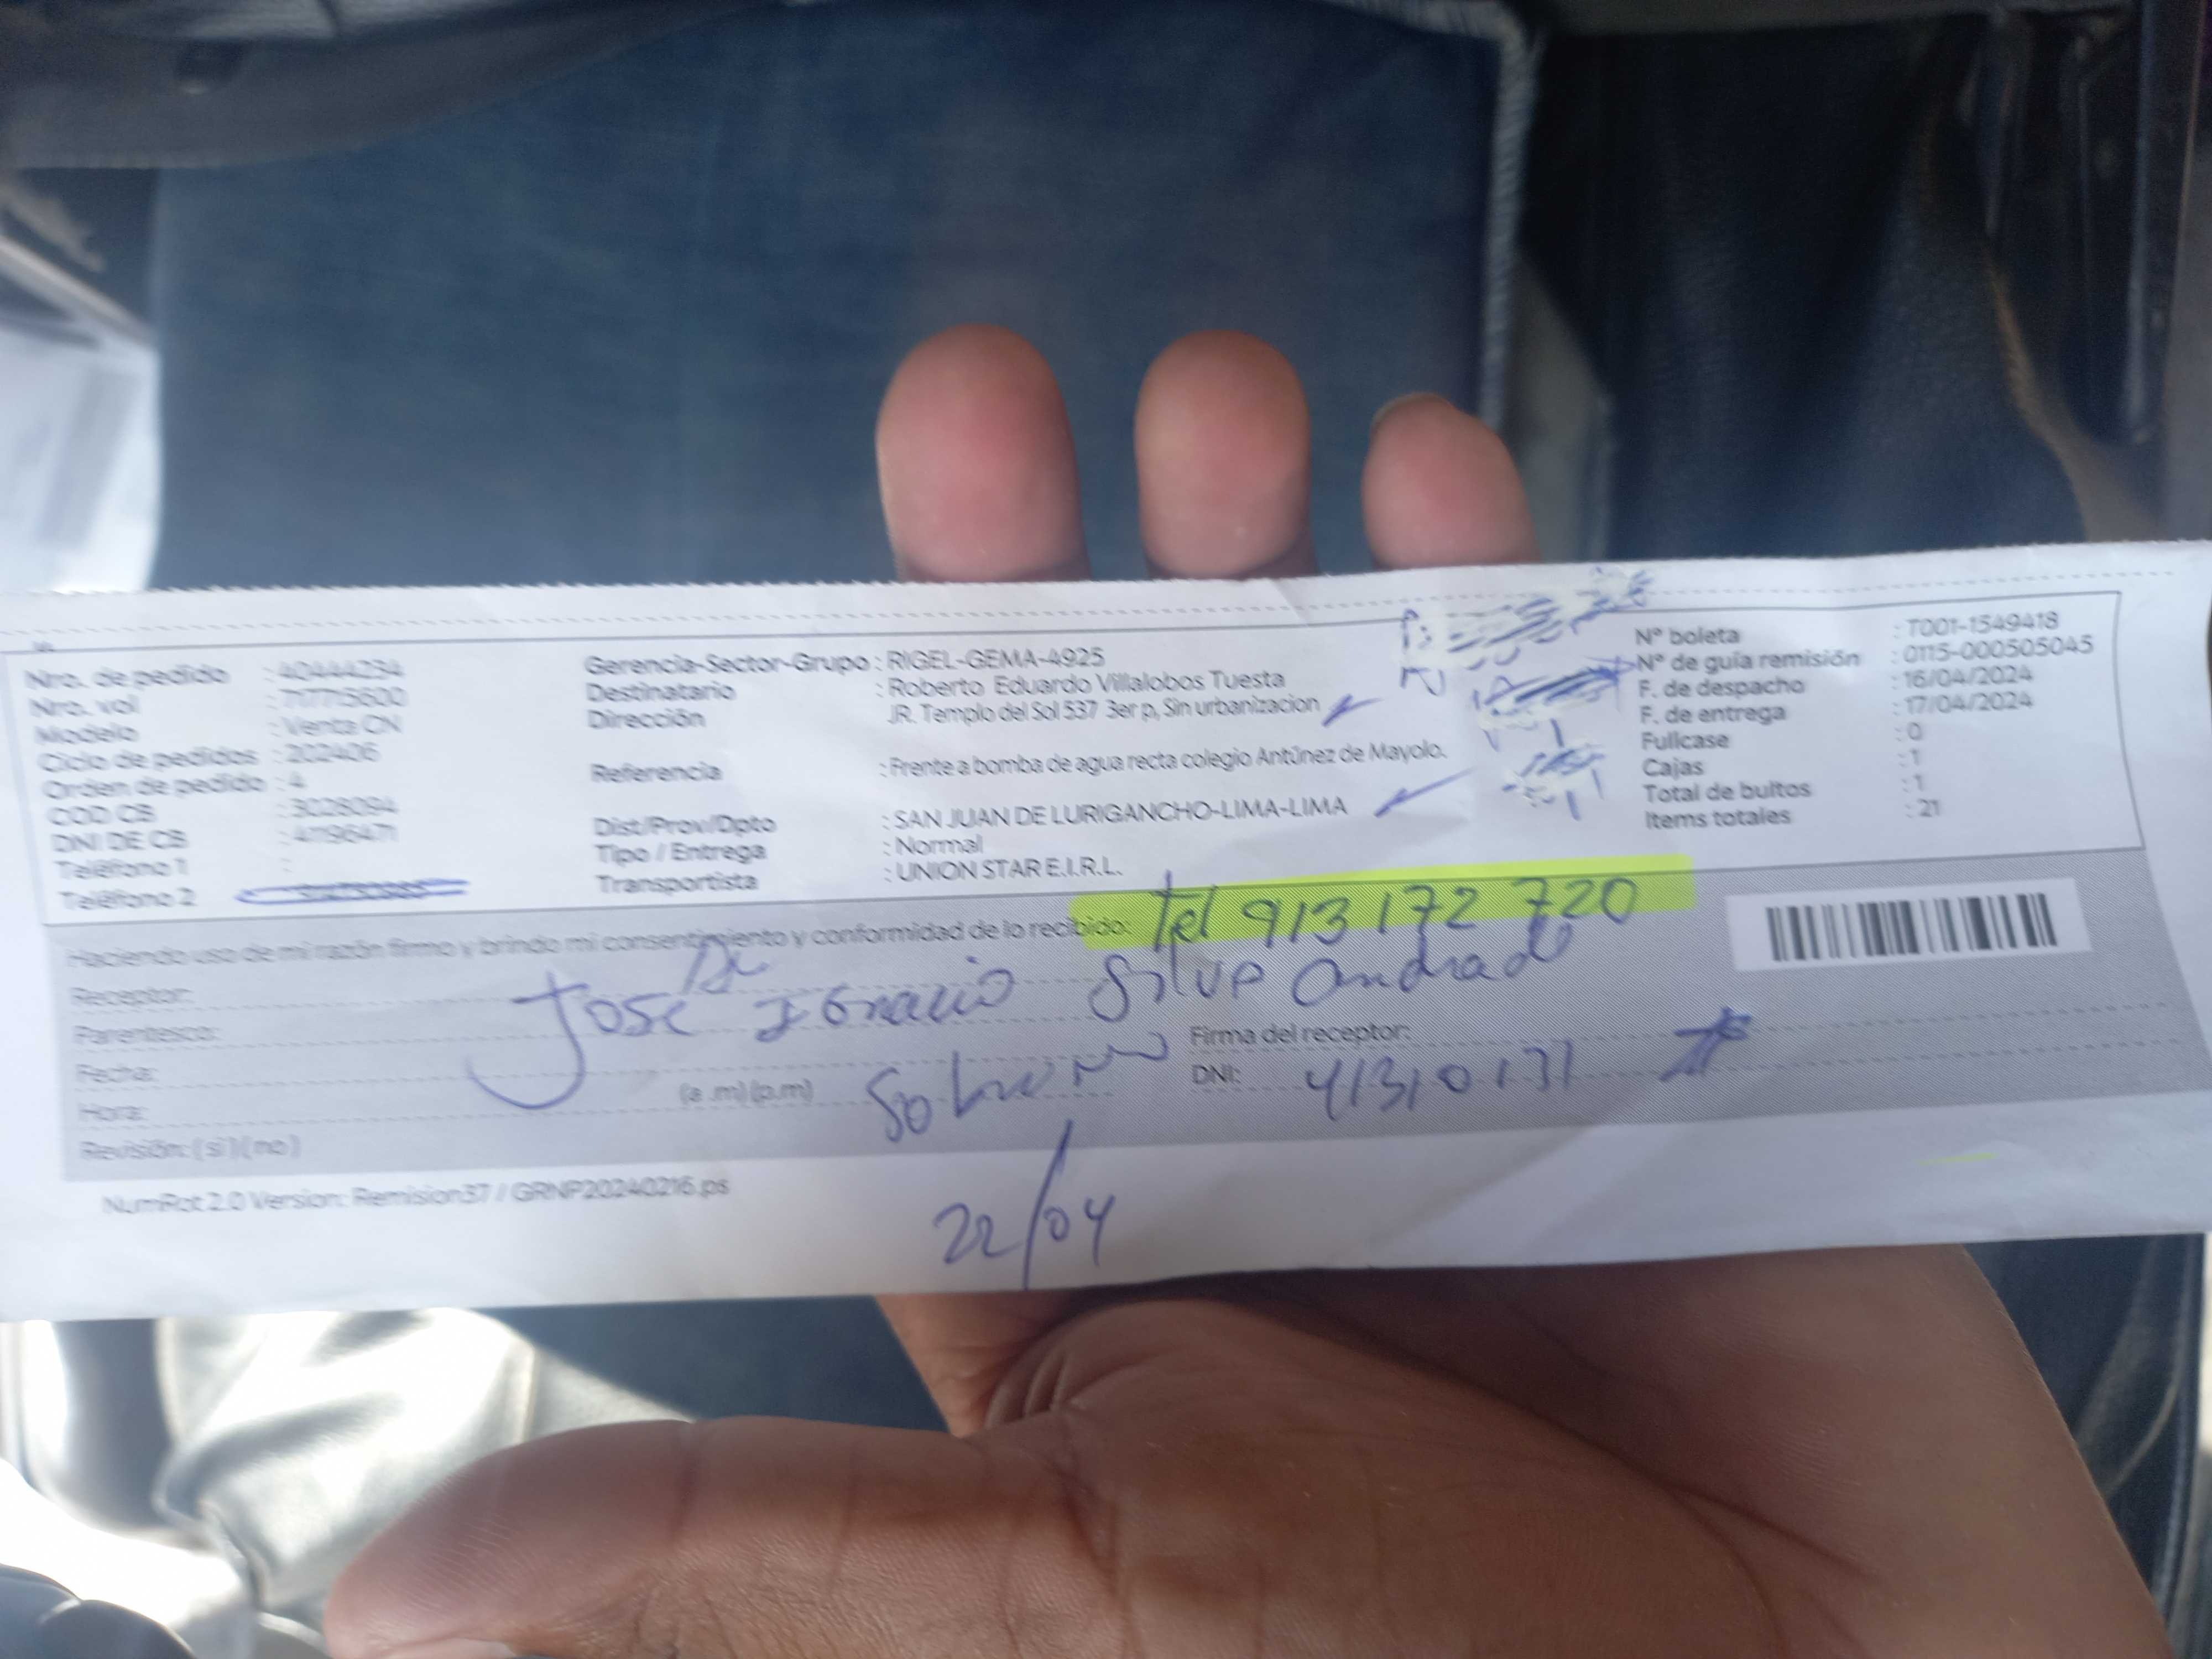 Nro. de pedido : 40444234
Nro. vol : 717715600
Modelo : Venta CN
Ciclo de pedidos : 202406
Orden de pedido : 4
COD CB : 3028094
DNI DE CB : 41196471
Teléfono 1 :
Teléfono 2
Gerencia-Sector-Grupo : RIGEL-GEMA-4925
Destinatario : Roberto Eduardo Villalobos Tuesta
Dirección : JR. Templo del Sol 537 3er p, Sin urbanizacion
Referencia : Frente a bomba de agua recta colegio Antúnez de Mayolo.
Dist/Prov/Dpto : SAN JUAN DE LURIGANCHO-LIMA-LIMA
Tipo / Entrega : Normal
Transportista : UNION STAR E.I.R.L.
N° boleta : T001-1549418
N° de guía remisión : 0115-000505045
F. de despacho : 16/04/2024
F. de entrega : 17/04/2024
Fullcase : 0
Cajas : 1
Total de bultos : 1
Items totales : 21
Haciendo uso de mi razón firmo y brindo mi consentimiento y conformidad de lo recibido: tel 913 172 720
Receptor: Jose Ignacio Silva Andrade
Parentesco:
Firma del receptor:
Fecha:
DNI: 41310131
Hora: (a .m) (p.m)
Revisión: ( sí ) ( no )
22/04
NumRot 2.0 Version: Remision37 / GRNP20240216.ps